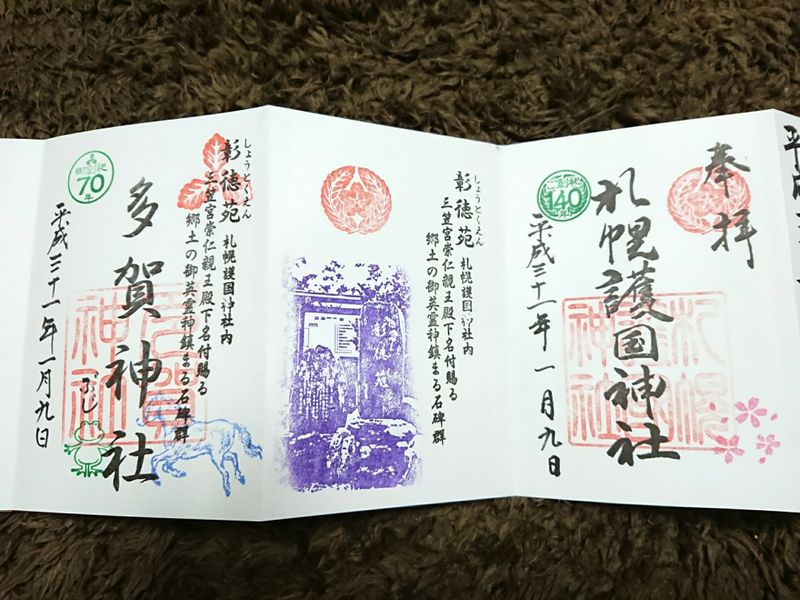 平成三
奉拝
札幌護国神社
平成三十一年一月九日
ご創祀
140年
札幌
神社
しょうとくえん
彰徳苑 札幌護国神社内
三笠宮崇仁親王殿下名付賜る
郷土の御英霊神鎮まる石碑群
しょうとくえん
彰徳苑 札幌護国神社内
三笠宮崇仁親王殿下名付賜る
郷土の御英霊神鎮まる石碑群
多賀神社
70年
平成三十一年一月九日
多賀
神社
ぶじ